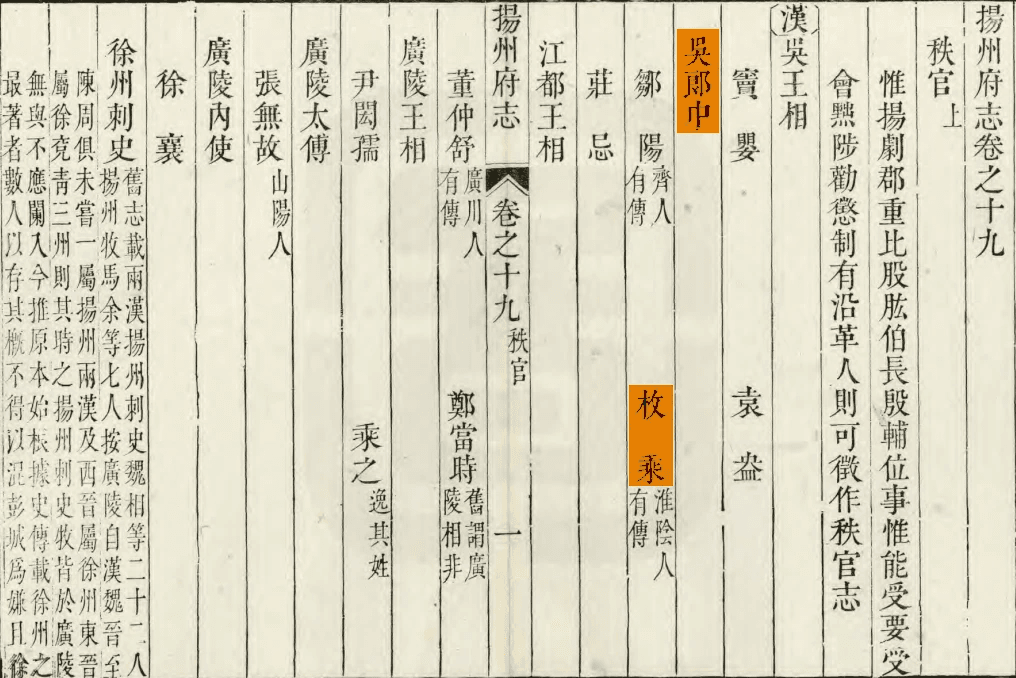 揚州府志卷之十九
秩官上
惟揚劇郡重比股肱伯長殷輔位事惟能受要受
會黜陟勸懲制有沿革人則可徵作秩官志
漢吳王相
竇嬰 袁盎
吳郎中
鄒陽 齊人有傳 枚乘 淮陰人有傳
莊忌
江都王相
揚州府志 卷之十九 秩官 一
董仲舒 廣川人有傳 鄭當時 舊謂廣陵相非
廣陵王相
尹閎孺 乘之 逸其姓
廣陵太傅
張無故 山陽人
廣陵內使
徐襄
徐州刺史 舊志載兩漢揚州刺史魏相等二十二人
揚州牧馬余等七人按廣陵自漢魏晉至
陳周俱未嘗一屬揚州兩漢及西晉屬徐州東晉
屬徐兗青三州則其時之揚州刺史牧皆於廣陵
無與不應闌入今推原本始根據史傳載徐州之
最著者數人以存其概不得以混彭城爲嫌且徐